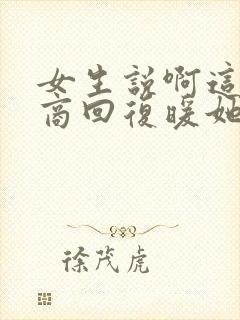 女生說啊這
高回復暖她
徐茂虎